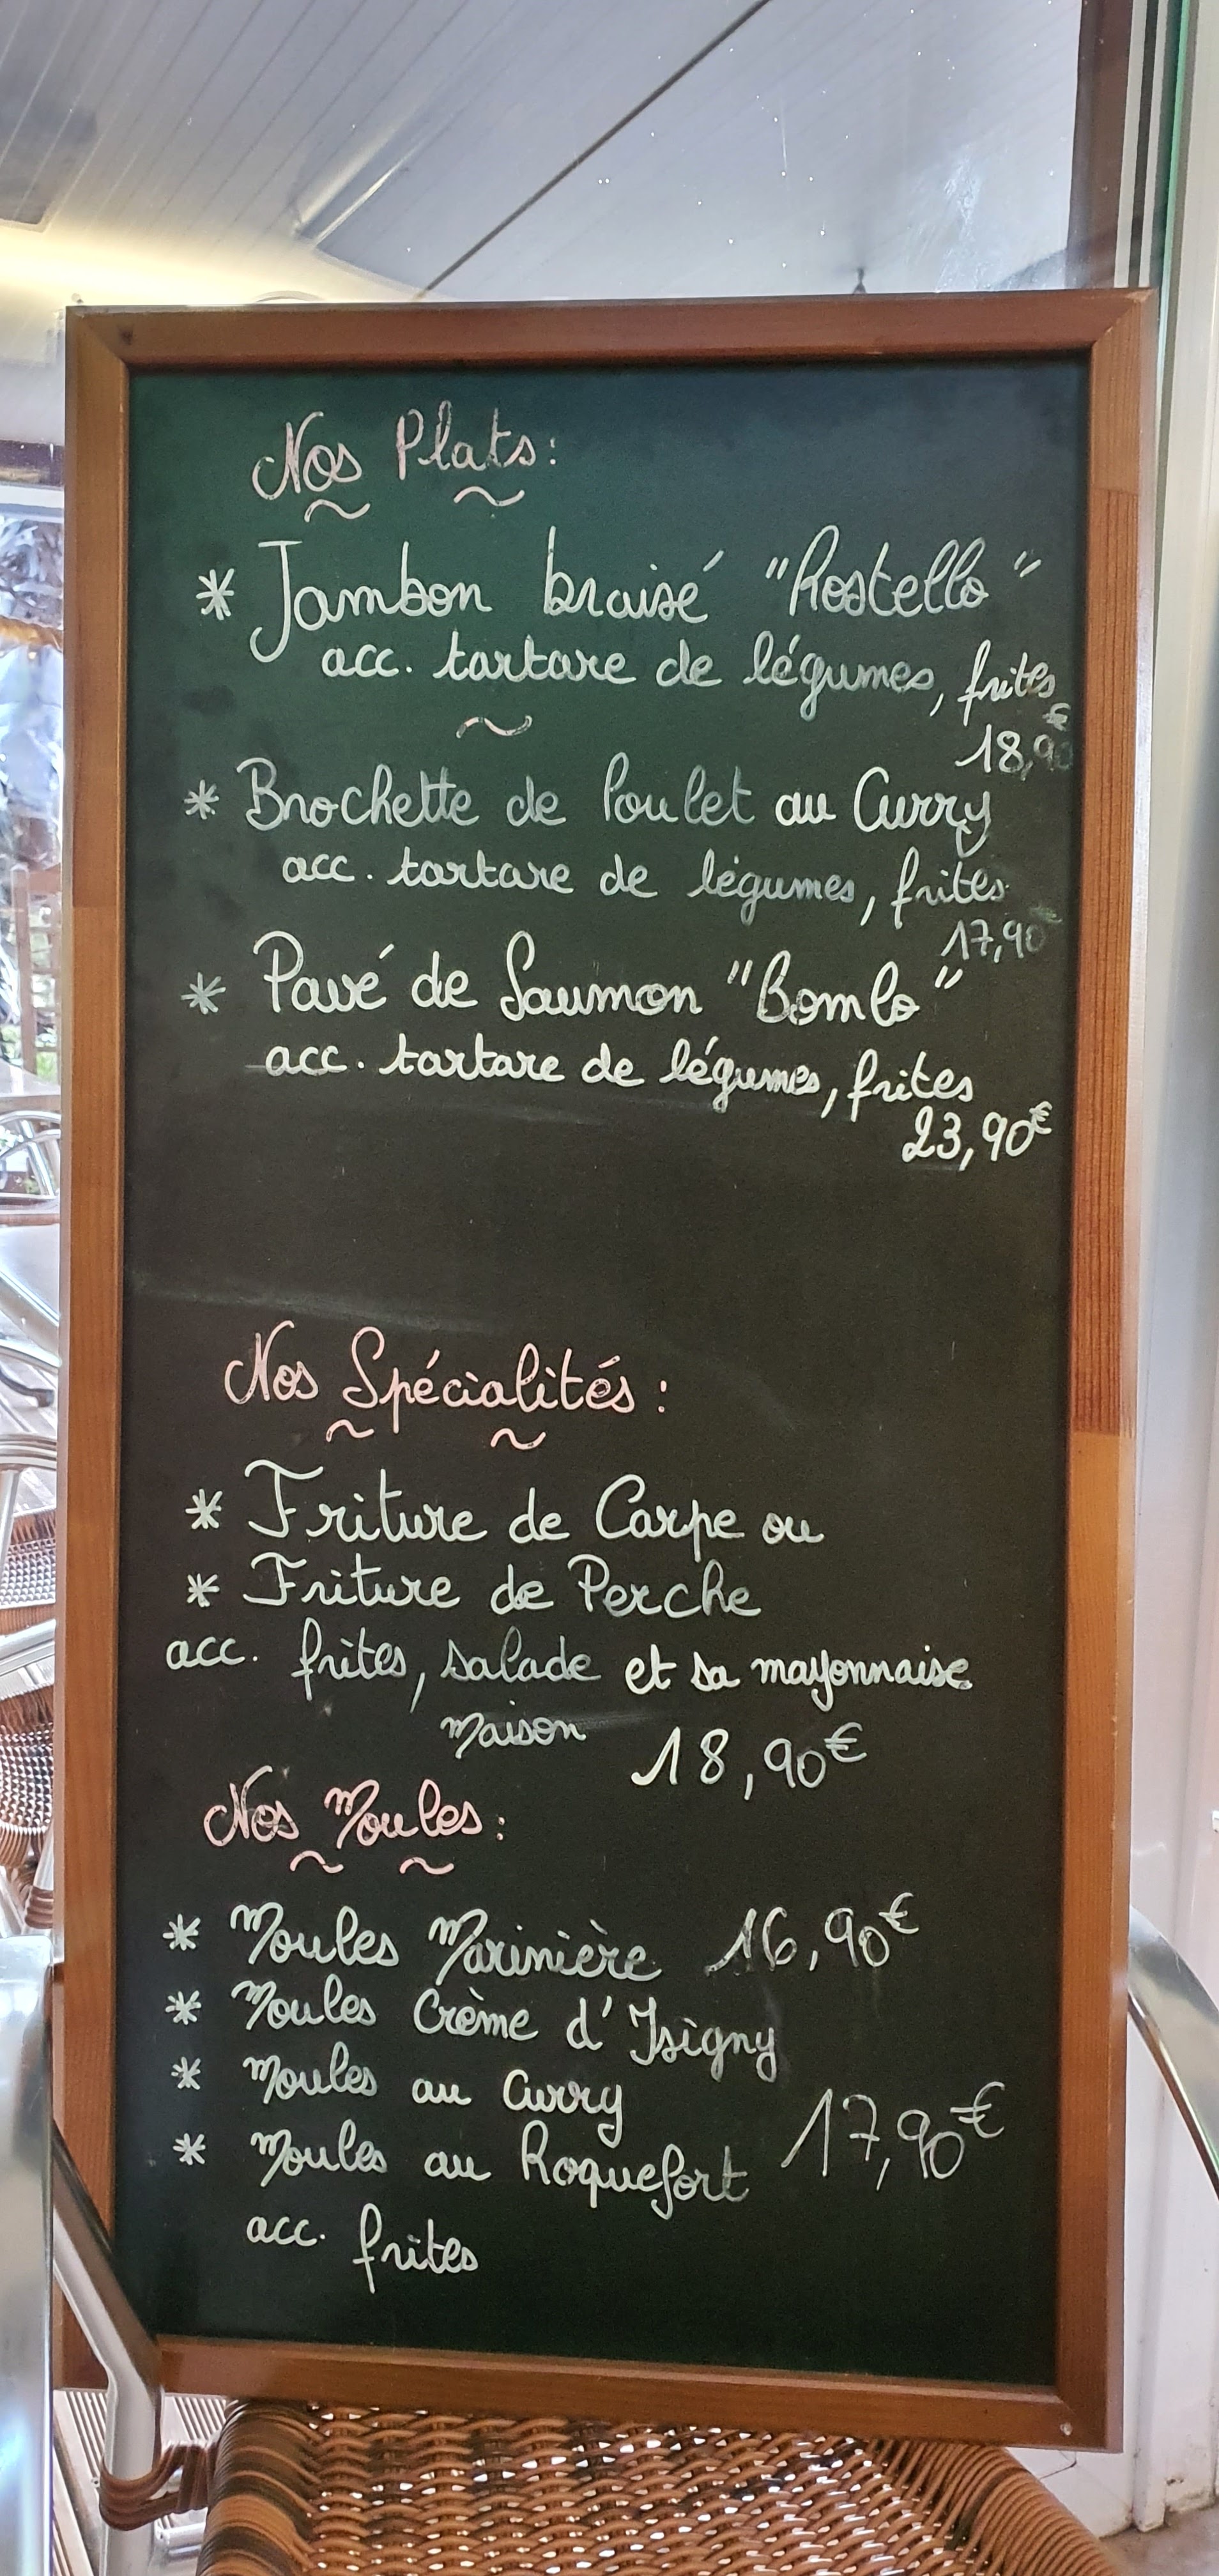 Nos Plats:
* Jambon braisé "Rostello"
acc. tartare de légumes, frites
18,90€
* Brochette de Poulet au Curry
acc. tartare de légumes, frites
17,90€
* Pavé de Saumon "Bomlo"
acc. tartare de légumes, frites
23,90€
Nos Spécialités:
* Friture de Carpe ou
* Friture de Perche
acc. frites, salade et sa mayonnaise
maison 18,90€
Nos Moules:
* Moules Marinière 16,90€
* Moules Crème d'Isigny
* Moules au Curry
* Moules au Roquefort 17,90€
acc. frites